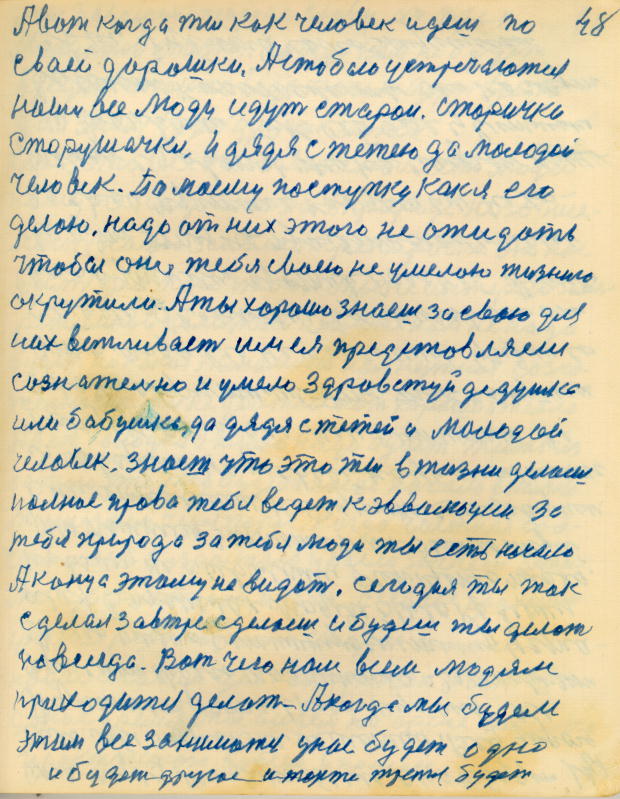 А вот когда ты как человек идеш по 48
своей дорошки. А с тобою устречаются
наши все люди идут старои. старичка
старушачки, и дядя с тетею да молодой
человек. Па моему поступку как я его
делою, надо от них этого не ожидать
чтобы они тебя своею не умелою жизнию
окрутили. А ты хорошо знаеш за свою для
них ветливаст им ея предстовляеш
сознателно и умело здравстуй дедушка
или бабушка, да дядя с тетей и молодой
человек. знает что это ты в жизни делаеш
полное права тебя ведет к эвалюции за
тебя природа за тебя люди ты есть начало
А конца этому не видат. сегодня ты так
сделал завтре сделаеш и будеш ты делат
навсегда. Вот чего нам всем людям
приходится делат А когда мы будем
этим все заниматя унас будет одно
и будет другое и тожа третя будет